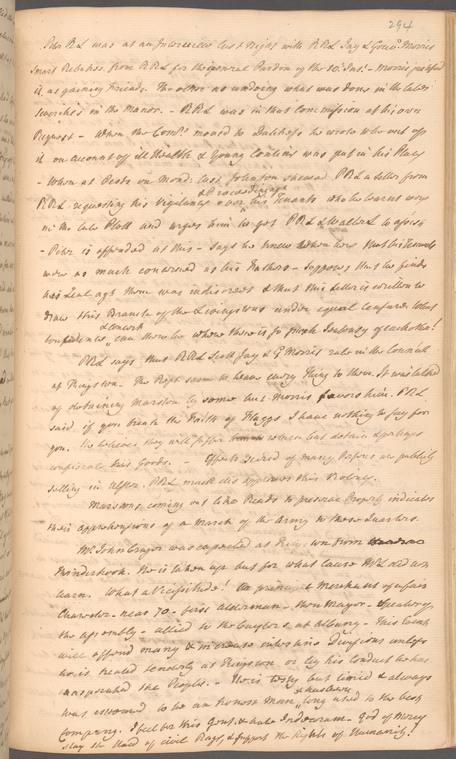 294
Peter R L was at an Interview last Night with R R L Jay & Gouvr. Morris
Smart Rebukes from R R L for the general Pardon of the 10: Inst. - Morris justified
it as gaining Friends. The other as undoing what was done in the later
Severities in the Manor. - P R L was in that Commission at his own
Request - When the Comee. moved to Dutchess he wrote who out of
it on account of ill Health & Young was put in his Place
- When at Peets on Mond: last Johnston shewed P R L a Letter from
& Proceedings
R R L requesting his Vigilance over his Tenants who he learnt were
in the late Plott and urges him to get P R L & Walter L to assist
- Peter is offended at this - says he knew when here that his Tenants
were as much concerned as his Fathers - supposes that he finds
his Zeal agt them was indiscreet & that this Letter is written to
draw this Branch of the Livingstons under equal Censure. What
confidence can there be where there is so much Jealousy of each other!
P R L says that R R L Scott Jay & G Morris rule in the Council
at Kingston. The Rest seem to leave every Thing to them. It was talked
of detaining Marston by some but Morris favors him. P R L
said if you break the Faith of Flaggs I have nothing to say for
you. He believes they will suffer when but detain & perhaps
confiscate his Goods. - Effects seized of many Persons are publicly
selling in Ulster. P R L much disapproves this Robbery.
Marstons coming out like Peets to preserve Property indicates
their apprehensions of a March of the Army to these Quarters.
Mr. John Cruger was expected at Kingston from
Kinderhook. He is taken up but for what Cause P R L did not
learn. What a Vicissitude! An eminent Merchant of a fair
Character - near 70 - been Alderman - then Mayor - Speaker of
the Assembly - allied to the Cuylers at Albany - This Event
will offend many & increase intestine Divisions unless
he is treated tenderly at Kingston or by his conduct he has
exasperated the People. - He is testy but timid & always
was esteemed to be an honest Man, long used to the best
company. I feel for this Gent. & hate Indecorum. God of Mercy
stay the Hand of civil Rage, & support the Rights of Humanity!